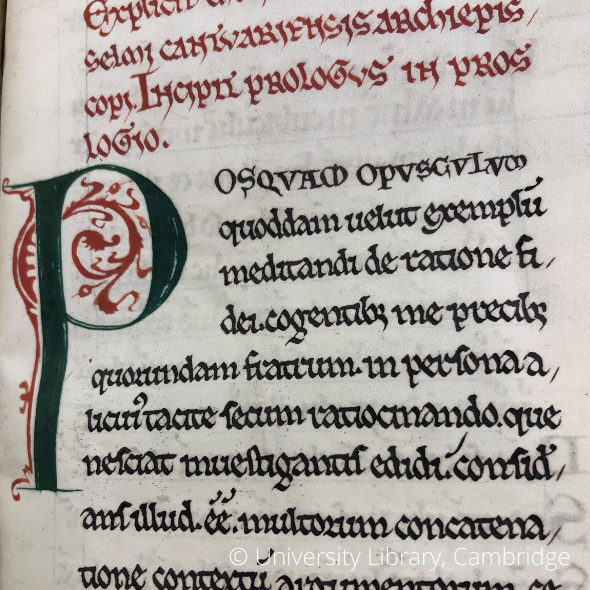 Explicit
selmi cantuariensis archiepis/
copi. Incipit prologus in pros
logio.
POSQUAM OPUSCULUM
quoddam uelut exemplū
meditandi de ratione fi/
dei. cogentibȝ me precibȝ
quorundam fratrum. in persona a/
licuiꝰ tacite secum ratiocinando. que
nesciat inuestigantis edidi. consid̵/
ans illud. éé. multorum concatena/
tione contextū argumentorum.
© University Library, Cambridge